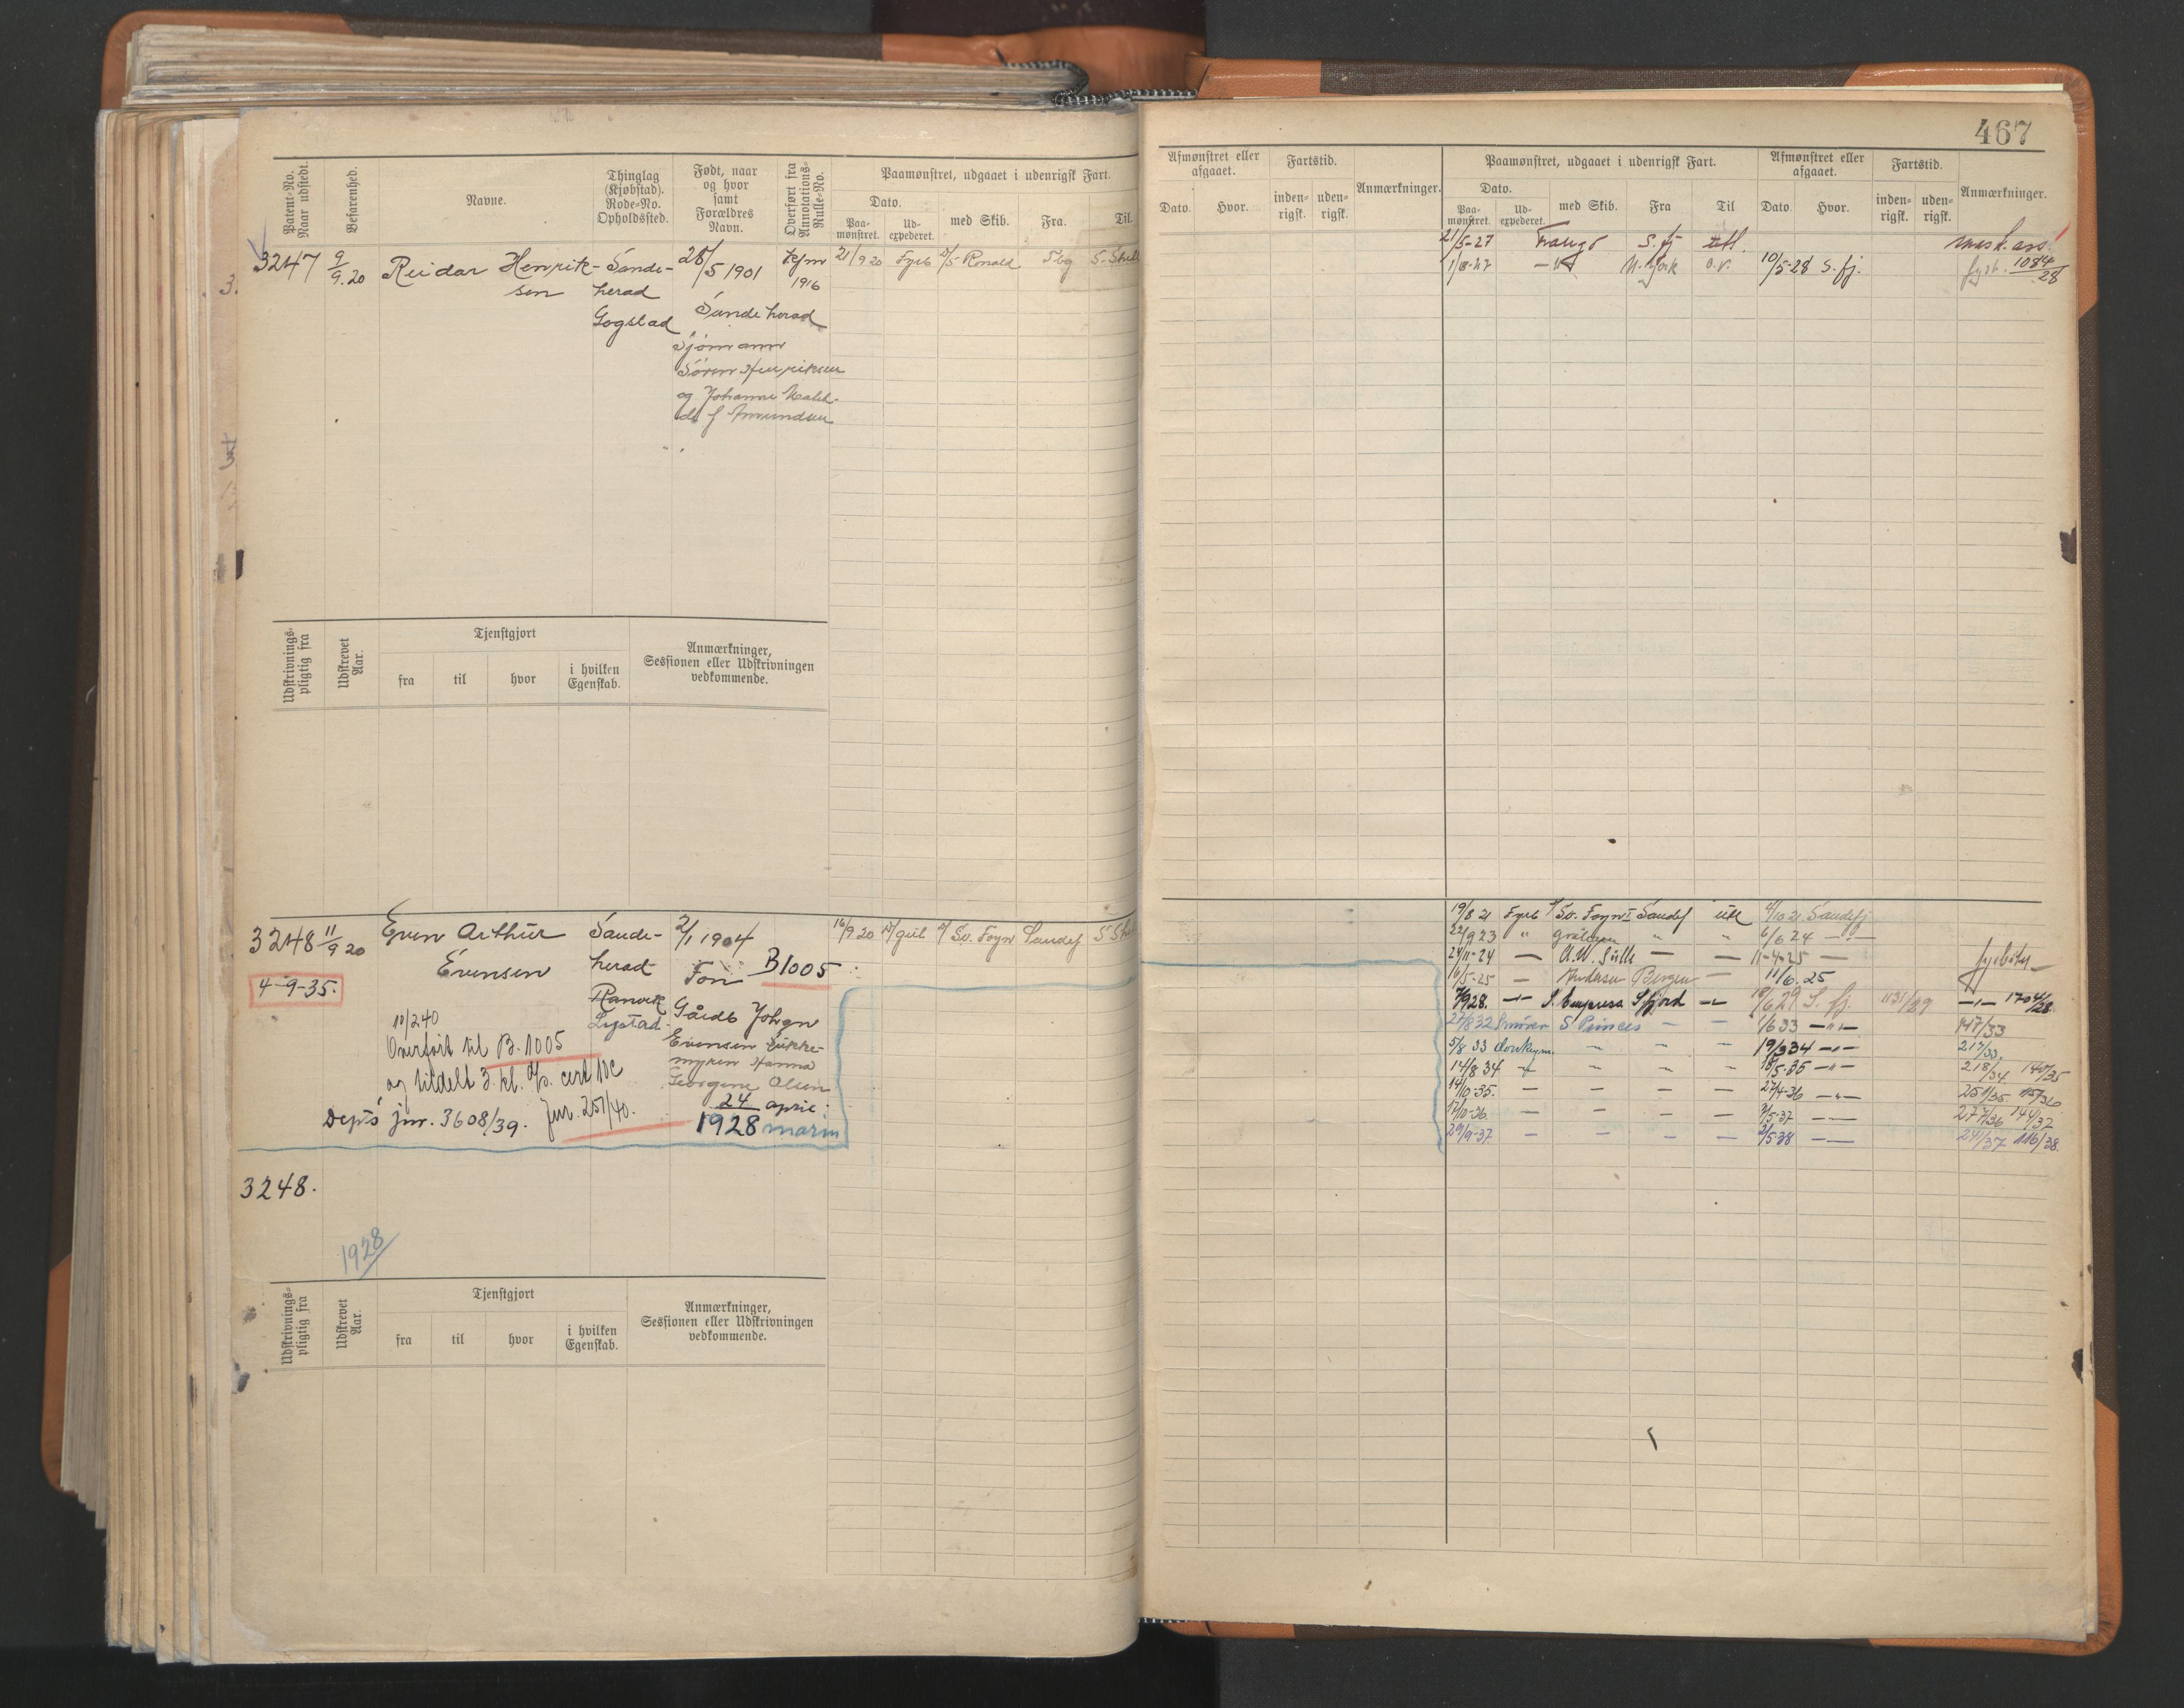 467
Patent-No.
Naar udstedt.
Befarenhed.
Navne.
Thinglag
(Kjøbstad).
Rode-No.
Opholdssted.
Født, naar
og hvor
samt
Forældres
Navn.
Overført fra
Annotations-
Rulle-No.
Paamønstret, udgaaet i udenrigsk Fart.
Dato.
Paa-
mønstret.
Ud-
expederet.
med Skib.
Fra.
Til.
Afmønstret eller
afgaaet.
Dato.
Hvor.
Fartstid.
inden-
rigsk.
uden-
rigsk.
Anmærkninger.
Paamønstret, udgaaet i udenrigsk Fart.
Dato.
Paa-
mønstret.
Ud-
expederet.
med Skib.
Fra
Til
Afmønstret eller
afgaaet.
Dato.
Hvor.
Fartstid.
inden-
rigsk.
uden-
rigsk.
Anmærkninger.
3247 9/9.20 Reidar Henrik-
sen
Sande-
herad
Gogstad
28/5 1901
Sandeherad
Sjømann
Søren Henriksen
og Johanne
f Amundsen
1916
21/9 20 Fyrb D/S Ronald Tbg S. Shetl
21/5-27 S. fj
1/8-27 N. York 10/5-28 S. fj. 1084/28
Udskrivnings-
pligtig fra
Udskrevet
Aar.
Tjenstgjort
fra
til
hvor
i hvilken
Egenskab.
Anmærkninger,
Sessionen eller Udskrivningen
vedkommende.
3248 11/9 20 Even Arthur
Evensen
4-9-35.
Sande-
herad
Ranvik
Lystad
2/1 1904
Fon B1005
Gårdb Johan
Evensen
myren Hanna
Georgine Olsen
24 april
1928 marin
10/2 40
Overført til B. 1005
og tildelt 3. kl.
Jnr. 251/40.
jnr. 3608/39.
16/9 20 Sv. Foyn Sandef S. Shetl
19/8 21 Fyrb Sv. Foyn I Sandef 4/10 21 Sandefj
22/9 23 " " " 6/6 24 —"—
24/11-24 — — — 11-4-25 —
fyrbøter
16/5-25 — Andersen Bergen — 11/6.25
7/9 28. —"— S. Empress Sfjord —"— 10/6 29 S. fj. 1131/29 —"— 1704/28
27/8 32 Smører S Princes — — 1/6 33 —"— 147/33
5/8 33 donkeym. — — — 19/3 34 —"— 217/33
14/8 34 — — — — 18/5-35 —"— 218/34 140/35
14/10-35. — — — — 27/4-36 —"— 251/35 115/36
17/10-36 — — — — 3/5-37 —— 277/36 144/37
29/9-37 — — — — 2/5-38 —— 241/37 116/38
3248.
1928
Udskrivnings-
pligtig fra
Udskrevet
Aar.
Tjenstgjort
fra
til
hvor
i hvilken
Egenskab.
Anmærkninger,
Sessionen eller Udskrivningen
vedkommende.